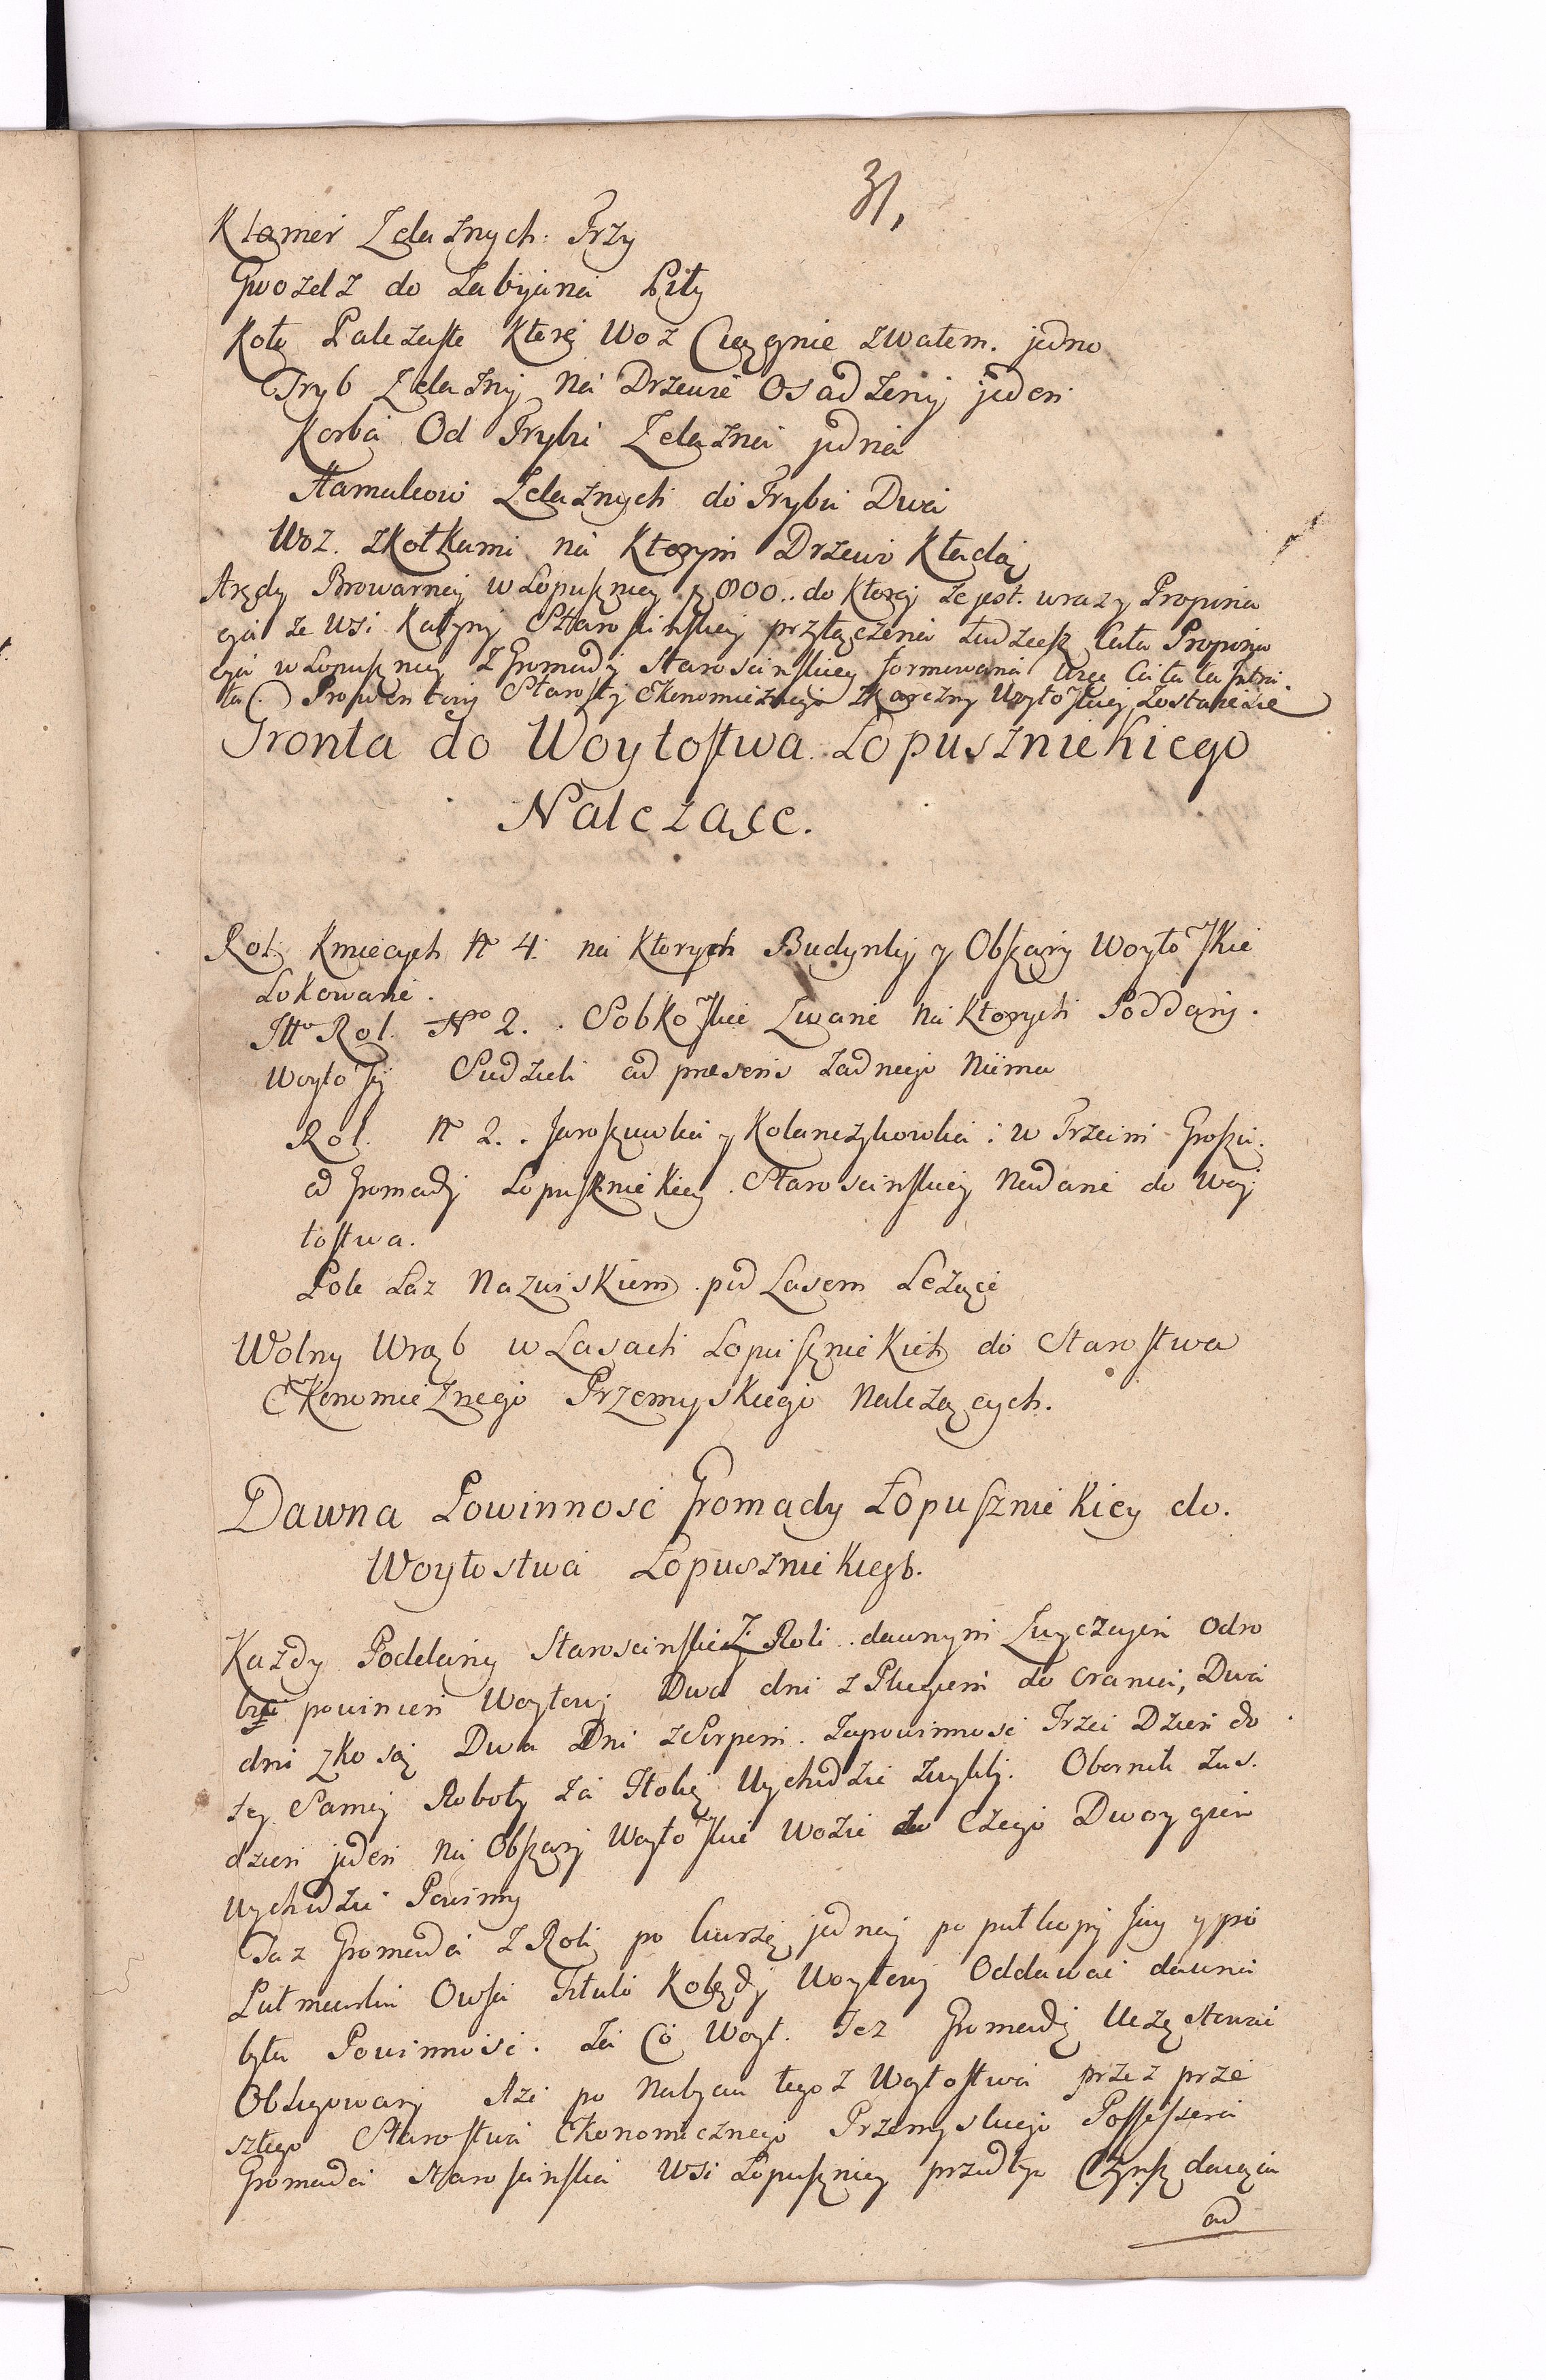 31,
Klamer Zelaznych. Trzy
Gwozdz do Zabijania Piły
Koło Palczaste Ktore Woz Ciągnie zwałem. jedno
Tryb Zelazny na Drzewie Osadzony jeden
Korba Od Trybu Zelazna jedna
Hamulcow Zelaznych do Trybu Dwa
Woz. zkołkami na Ktorym Drzewo Kładą
Arędy Browarney w Łopusznicy 800.. do Ktorey ze jest. wraz y Propina
cyia ze Wsi Katyny Starościnskiey przyłączona tudziesz Cała Propina
cyia w Łopusznicy z Gromady Staroscinskiey formowana Cała ta Intra
ta Prowentowy Starosty Ekonomicznego zkarczmy Woytoskiey Zostaie sie
Gronta do Woytostwa Łopusznickiego
Należące.
Rol. Kmiecych N 4. na Ktorych Budynky y Obszary Woytoskie
Lokowane.
Itto Rol. No 2. . Sobkoskie Zwane na Ktorych Poddany.
Woytosy Siedzieli ad presens zadnego Niema
Rol. N 2. . Jaroszowka y Kolanczykowka : w Trzecim Groszu.
od Gromady Łopusznickiey Staroscinskiey Nadane do Woy
tostwa.
Pole Łaz Nazwiskiem pod Lasem Leżące
Wolny Wrąb w Lasach Łopusznickich do Starostwa
Ekonomicznego Przemyskiego Należących.
Dawna Powinnosć Gromady Łopusznickiey do.
Woytostwa Łopusznickiego.
Każdy Poddany Staroscinski z Roli dawnym Zwyczayem Odro
bić powinien Woytowy Dwa dni z Pługiem do orania, Dwa
dni zkosą Dwa Dni zSierpem. Zapowinnosc Trzei Dzien do
tey Samey Roboty za Tłokę Wychodzic zwykły. Obornik zas.
dzien jeden na Obszary Woytoskie Wozic do Czego Dwoy gien
wychodzic Powinny
Taz Gromada z Roli po kurze jedney po pułkopy Jay y po
Pułmiarku Owsa Titulo Kolędy Woytowy Oddawac dawna
była Powinnosc. Za Co Woyt. Tez Gromadę Uczęstowac
Obligowany Aże po Nabyciu tegoz Woytostwa przez prze
szłego Starostwa Ekonomicznego Przemyskiego Possessora
Gromada Starosinska Wsi Łopusznicy przedtym Czynsz daiąca
od